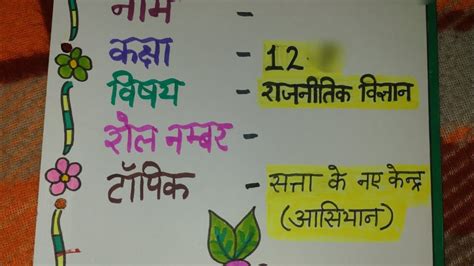 नाम -
कक्षा - 12
विषय - राजनीतिक विज्ञान
रोल नम्बर -
टॉपिक - सत्ता के नए केन्द्र
(आसियान)